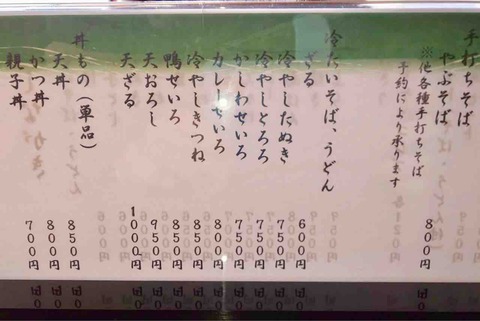 手打ちそば
やぶそば 800円
※他各種手打ちそば
予約により承ります
冷たいそば、うどん
ざる 600円
冷やしたぬき 750円
冷やしとろろ 750円
かしわせいろ 750円
カレーせいろ 800円
冷やしきつね 850円
鴨せいろ 850円
天おろし 950円
天ざる 1000円
丼もの(単品)
天丼 850円
かつ丼 800円
親子丼 700円